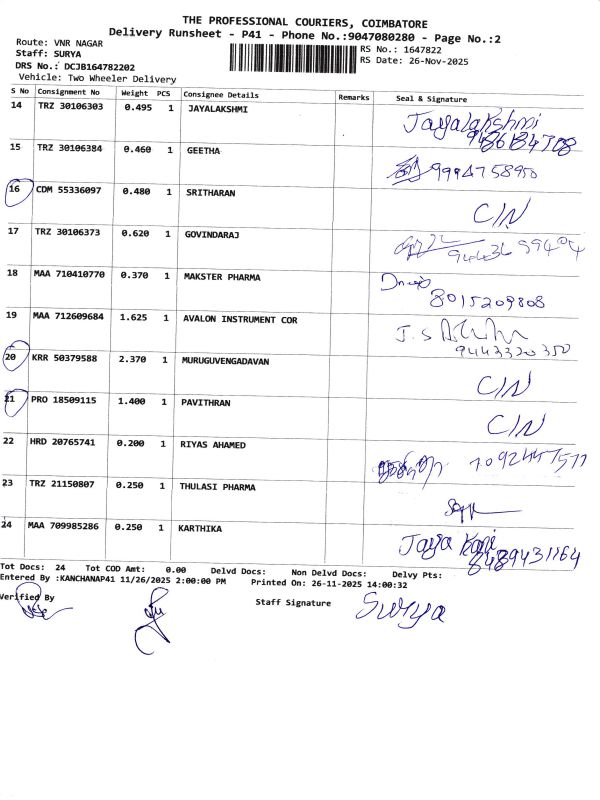 THE PROFESSIONAL COURIERS, COIMBATORE
Delivery Runsheet - P41 - Phone No.:9047080280 - Page No.:2
Route: VNR NAGAR
Staff: SURYA
DRS No.: DCJB164782202
Vehicle: Two Wheeler Delivery
RS No.: 1647822
RS Date: 26-Nov-2025
S No Consignment No Weight PCS Consignee Details Remarks Seal & Signature
14 TRZ 30106303 0.495 1 JAYALAKSHMI Jayalakshmi
15 TRZ 30106384 0.460 1 GEETHA 9994758950
16 CDM 55336097 0.480 1 SRITHARAN C/N
17 TRZ 30106373 0.620 1 GOVINDARAJ
18 MAA 710410770 0.370 1 MAKSTER PHARMA
8015209808
19 MAA 712609684 1.625 1 AVALON INSTRUMENT COR
9443320350
20 KRR 50379588 2.370 1 MURUGUVENGADAVAN C/N
21 PRO 18509115 1.400 1 PAVITHRAN C/N
22 HRD 20765741 0.200 1 RIYAS AHAMED
23 TRZ 21150807 0.250 1 THULASI PHARMA
24 MAA 709985286 0.250 1 KARTHIKA Jaya Kani
8489431164
Tot Docs: 24 Tot COD Amt: 0.00 Delvd Docs: Non Delvd Docs: Delvy Pts:
Entered By :KANCHANAP41 11/26/2025 2:00:00 PM Printed On: 26-11-2025 14:00:32
Verified By Staff Signature Surya